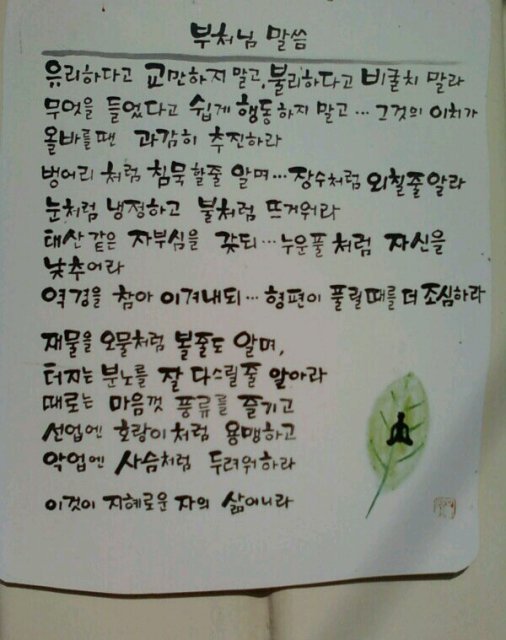 부처님 말씀
유리하다고 교만하지 말고, 불리하다고 비굴치 말라
무엇을 들었다고 쉽게 행동하지 말고... 그것의 이치가
올바를땐 과감히 추진하라
벙어리 처럼 침묵 할줄 알며... 장수처럼 외칠줄 알라
눈처럼 냉정하고 불처럼 뜨거워라
태산 같은 자부심을 갖되... 누운풀 처럼 자신을
낮추어라
역경을 참아 이겨내되... 형편이 풀릴때를 더 조심하라
재물을 오물처럼 볼줄도 알며,
터지는 분노를 잘 다스릴줄 알아라
때로는 마음껏 풍류를 즐기고
선업엔 호랑이처럼 용맹하고
악업엔 사슴처럼 두려워하라
이것이 지혜로운 자의 삶이니라